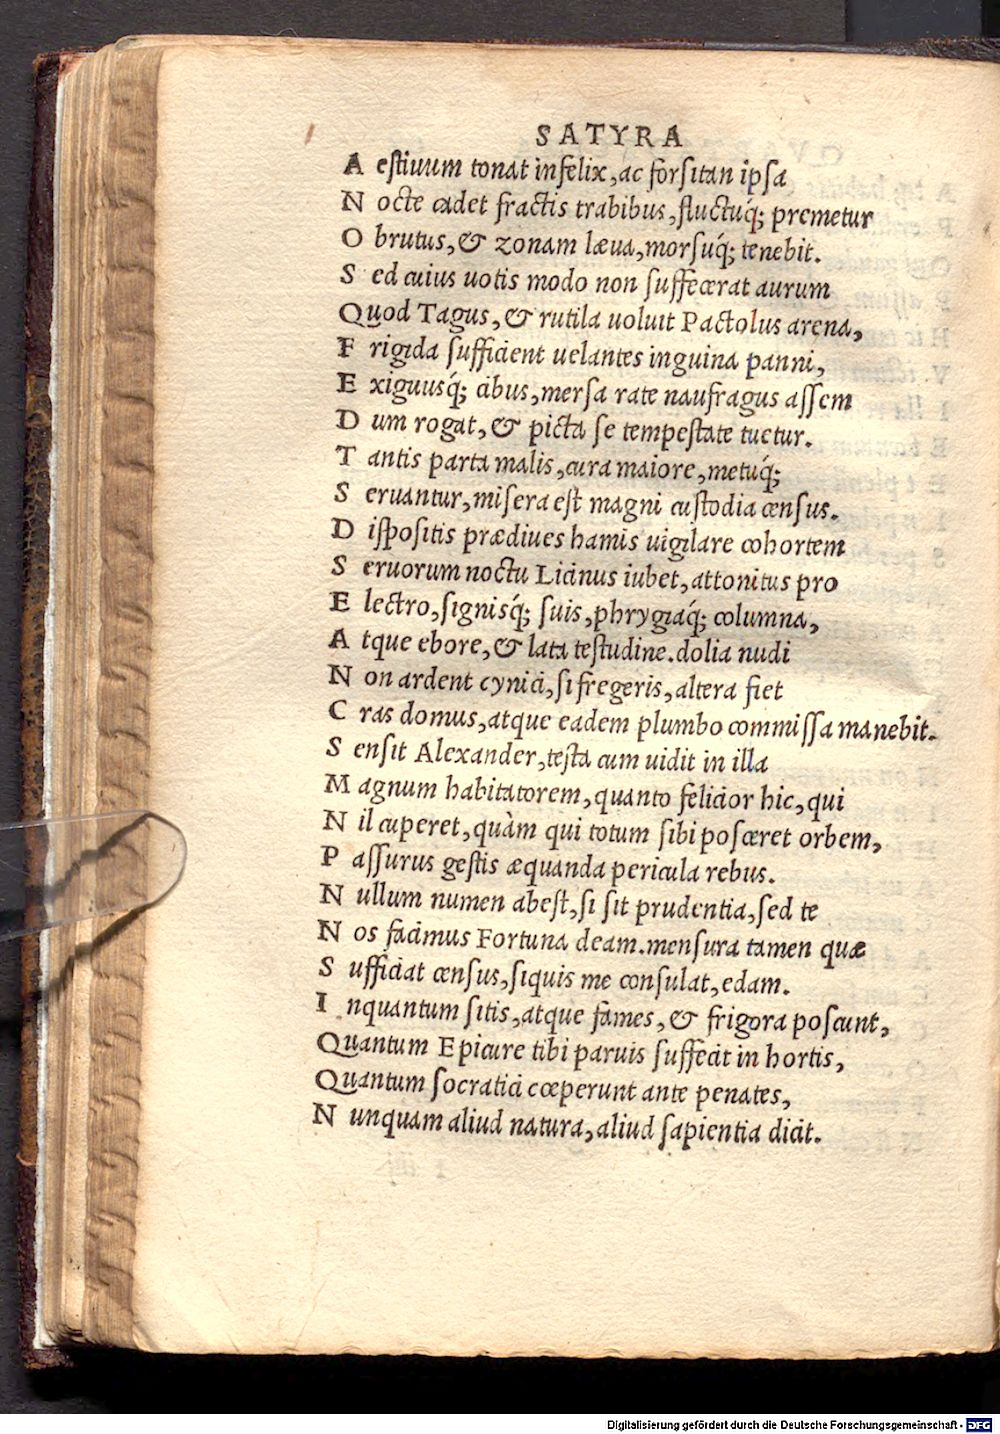 SATYRA
Aestiuum tonat infelix, ac forsitan ipsa
Nocte cadet fractis trabibus, fluctuq́; premetur
Obrutus, & zonam læua, morsuq́; tenebit.
Sed cuius uotis modo non suffecerat aurum
Quod Tagus, & rutila uoluit Pactolus arena,
Frigida sufficient uelantes inguina panni,
Exiguusq́; cibus, mersa rate naufragus assem
Dum rogat, & picta se tempestate tuetur.
Tantis parta malis, cura maiore, metuq́;
Seruantur, misera est magni custodia census.
Dispositis prædiues hamis uigilare cohortem
Seruorum noctu Licinus iubet, attonitus pro
Electro, signisq́; suis, phrygiaq́; columna,
Atque ebore, & lata testudine. dolia nudi
Non ardent cynici, si fregeris, altera fiet
Cras domus, atque eadem plumbo commissa manebit.
Sensit Alexander, testa cum uidit in illa
Magnum habitatorem, quanto felicior hic, qui
Nil cuperet, quàm qui totum sibi posceret orbem,
Passurus gestis æquanda pericula rebus.
Nullum numen abest, si sit prudentia, sed te
Nos facimus Fortuna deam. mensura tamen quæ
Sufficiat census, siquis me consulat, edam.
Inquantum sitis, atque fames, & frigora poscunt,
Quantum Epicure tibi paruis suffecit in hortis,
Quantum socratici cœperunt ante penates,
Nunquam aliud natura, aliud sapientia dicit.
Digitalisierung gefördert durch die Deutsche Forschungsgemeinschaft - DFG